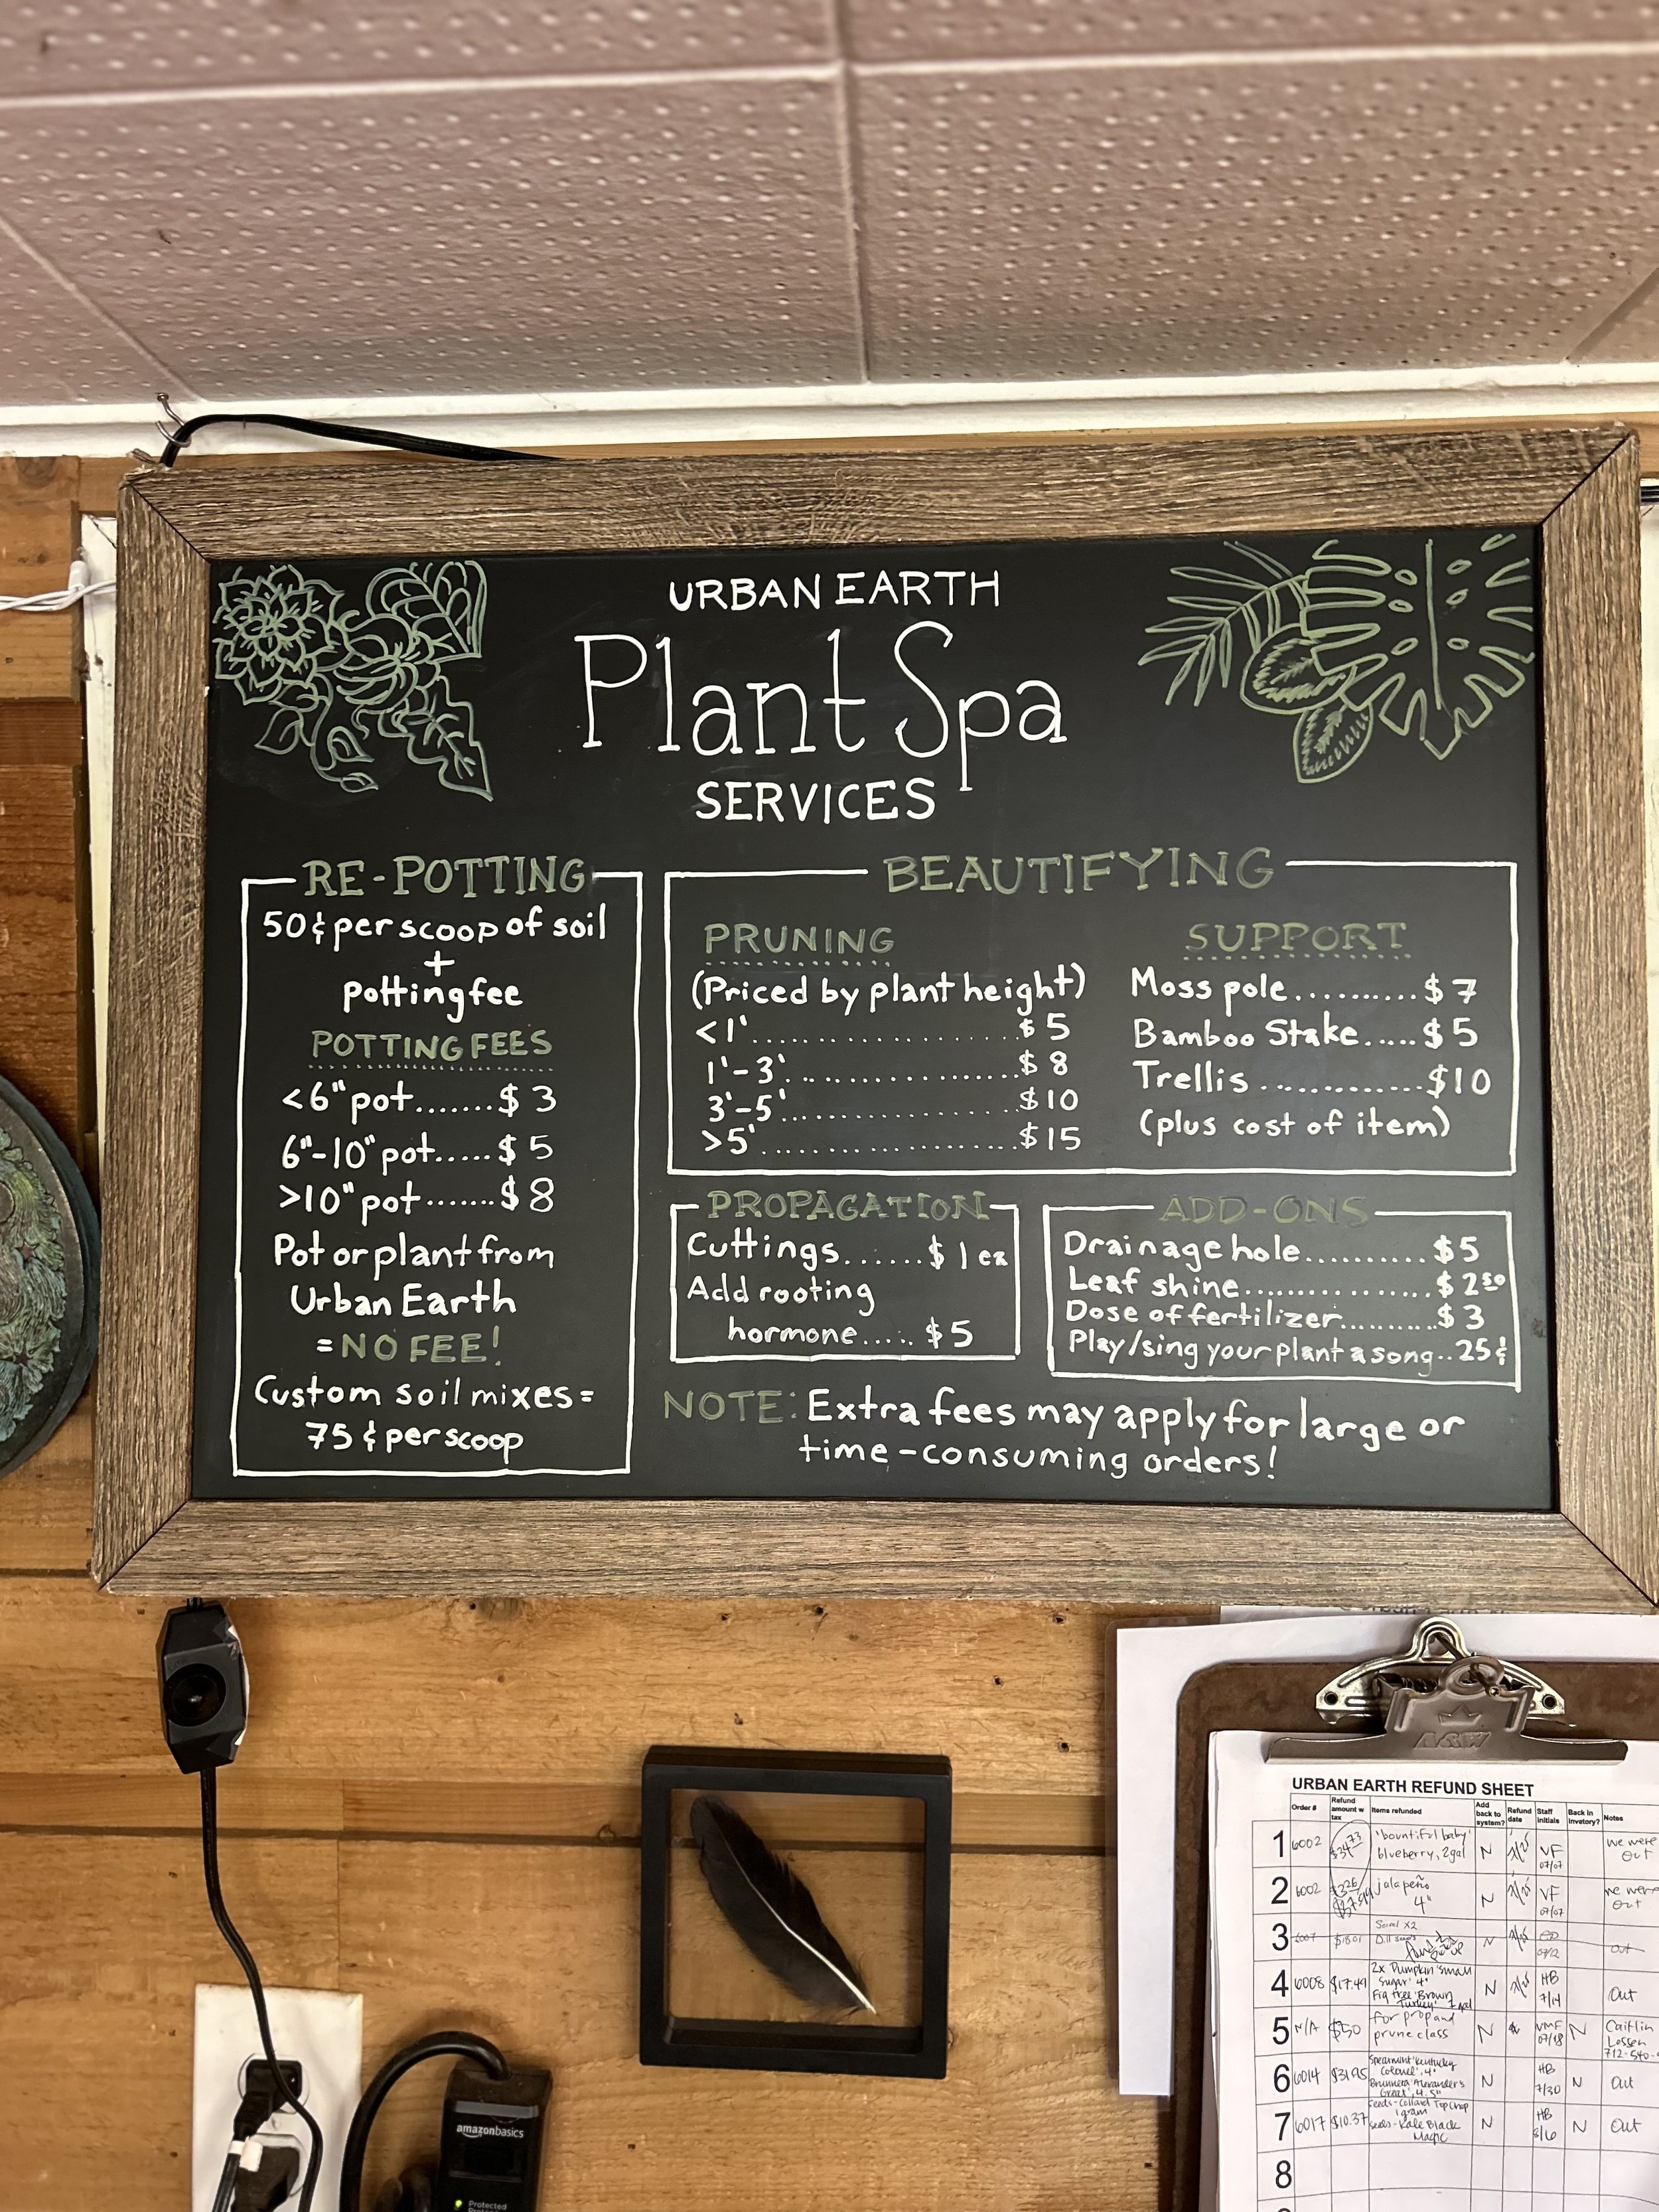 URBAN EARTH
Plant Spa
SERVICES
RE-POTTING
50¢ per scoop of soil
+
potting fee
POTTING FEES
<6" pot.......$ 3
6"-10" pot.....$ 5
>10" pot.......$ 8
Pot or plant from
Urban Earth
= NO FEE!
Custom soil mixes =
75¢ per scoop
BEAUTIFYING
PRUNING
(Priced by plant height)
<1'...................$ 5
1'-3'..................$ 8
3'-5'..................$10
>5'...................$15
SUPPORT
Moss pole..........$ 7
Bamboo Stake.....$ 5
Trellis.............$10
(plus cost of item)
PROPAGATION
Cuttings......$ 1 ea
Add rooting
hormone.....$5
ADD-ONS
Drainage hole..........$5
Leaf shine................$ 2⁵⁰
Dose of fertilizer..........$ 3
Play/sing your plant a song..25¢
NOTE: Extra fees may apply for large or
time-consuming orders!
A&W
URBAN EARTH REFUND SHEET
Order # Refund amount w tax Items refunded Add back to system? Refund date Staff initials Back in Invetory? Notes
1 6002 'bountiful baby' blueberry, 2gal N VF 07/07 we were out
2 6002 jalapeño 4" N VF 07/07 we were out
3 N
4 6008 $17.49 2x Pumpkin 'small Sugar' 4" Fig tree 'Brown Turkey' 1 gal N HB 7/14 Out
5 N/A $50 for prop and prune class N VMF 07/18 N Caitlin
6 6014 $31.95 Spearmint 'Kentucky Colonel', 4" N HB 7/30 N Out
7 6017 $10.37 Seeds-Collard Top Chop 1 gram Seeds-Kale Black Magic N HB 8/6 N Out
8
amazonbasics
Protected